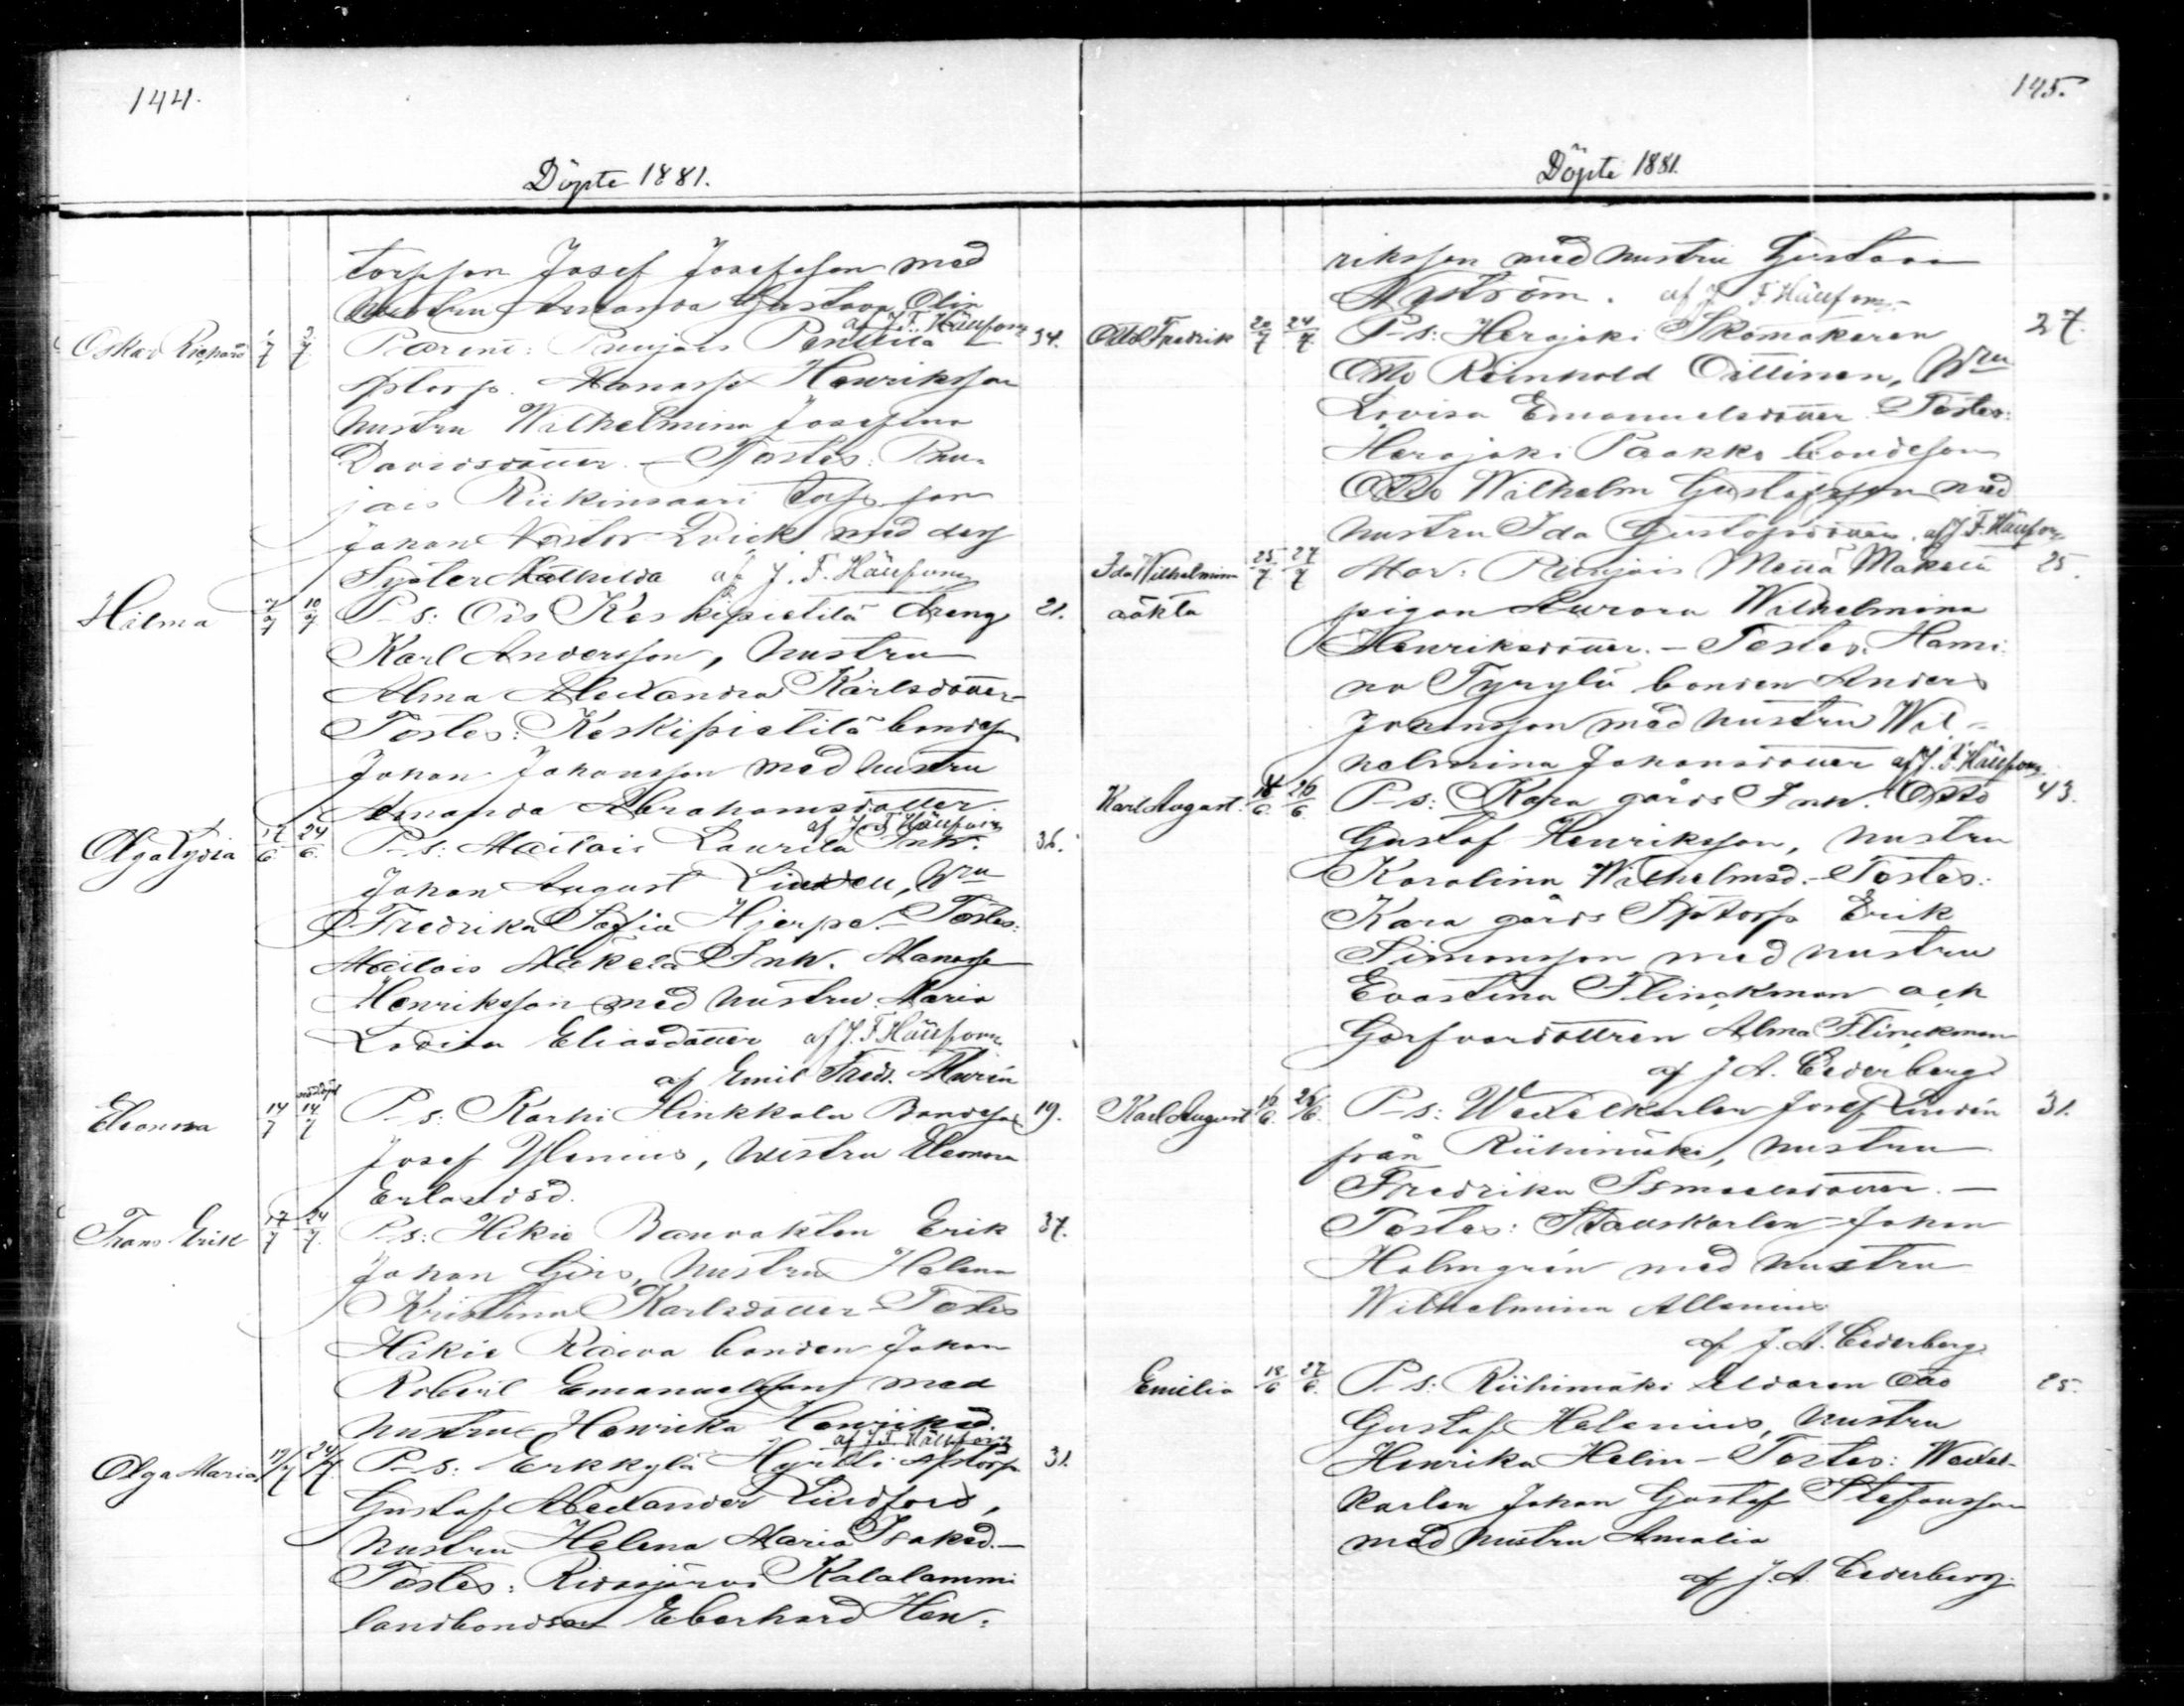 144.
Döpte 1881.
torpson Josef Josefsson med
hustru Amanda Gustava Olin
af J. F. Hällfors
Oskar Richard 1/7 3/7 Parent: Punjois Penttilä 34.
sptorp. Manasse Henriksson
hustru Wilhelmina Josefina
Davidsdotter. – Testes: Pun-
jois Riikinsaari torp. son
Johan Nestor Qvick med dess
Syster Mathilda af J. F. Hällfors
Hilma 7/7 10/7 P-s: Ois Keskipietilä dreng 21.
Karl Andersson, hustru
Alma Alexandra Karlsdotter–
Testes: Keskipietilä bondeson
Johan Johansson med hustru
Amanda Abrahamsdotter.
af J. F. Hällfors
Olga Lydia 17/6 24/6 P-s: Mailais Laurila Inh. 36.
Johan August Lindell, Hru
Fredrika Sofia Hjerpe. – Testes:
Mailais Mäkelä Inh. Manasse
Henriksson med hustru Maria
Lovisa Eliasdotter af J. F. Hällfors
af Emil Fredr. Murén
Eleonora 14/7 nöddöpt 14/7 P-s: Karhi Hinkkala Bondeson 19.
Josef Ylenius, hustru Eleonora
Erlandsd.
Frans Erik 17/7 24/7 P-s: Hikie Banvakten Erik 37.
Johan Girs, hustru Helena
Kristina Karlsdotter – Testes
Hikie Raiva bonden Johan
Robert Emanuelsson med
hustru Henrika Henriksd.
af J. F. Hällfors
Olga Maria 19/7 24/7 P-s: Erkkylä Hyrlli sptorp 31.
Gustaf Alexander Lindfors,
hustru Helena Maria Isaksd. –
Testes: Ridasjärvi Kalalammi
landbondson Eberhard Hen-
145.
Döpte 1881.
riksson med hustru Gustava
Nyström. af J. F. Hällfors –
Otto Fredrik 20/7 24/7 P-s: Herajoki Skomakaren 27.
Otto Reinhold Oittinen, Hru
Lovisa Emanuelsdotter. Testes:
Herajoki Paakko bondeson
Otto Wilhelm Gustafsson med
hustru Ida Gustafsdotter. af J. F. Hällfors
Ida Wilhelmina 25/7 27/7 Mor: Punjois Mäkelä 25.
oäkta pigan Aurora Wilhelmina
Henriksdotter. – Testes: Hami-
na Tyrylä bonden Anders
Johansson med hustru Wil-
helmina Johansdotter af J. F. Hällfors
Karl August. 18/6 26/6 P-s: Kara gårds Inh. Otto 43.
Gustaf Henriksson, hustru
Karolina Wilhelmsd. – Testes:
Kara gårds Sptorp Erik
Simonsson med hustru
Evastina Flinckman och
Garfvardottren Alma Flinckman
af J. A. Cederberg
Karl August 16/6 26/6 P-s: Wexelkarlen Josef Lindén 31.
från Riihimäki, hustru
Fredrika Ismaelsdotter. –
Testes: Stallkarlen Johan
Holmgrén med hustru
Wilhelmina Allenius
af J. A. Cederberg.
Emilia 18/6 27/6 P-s: Riihimäki Eldaren Otto 25.
Gustaf Helenius, hustru
Henrika Helin – Testes: Wexel-
karlen Johan Gustaf Stefansson
med hustru Amalia
af J. A. Cederberg.